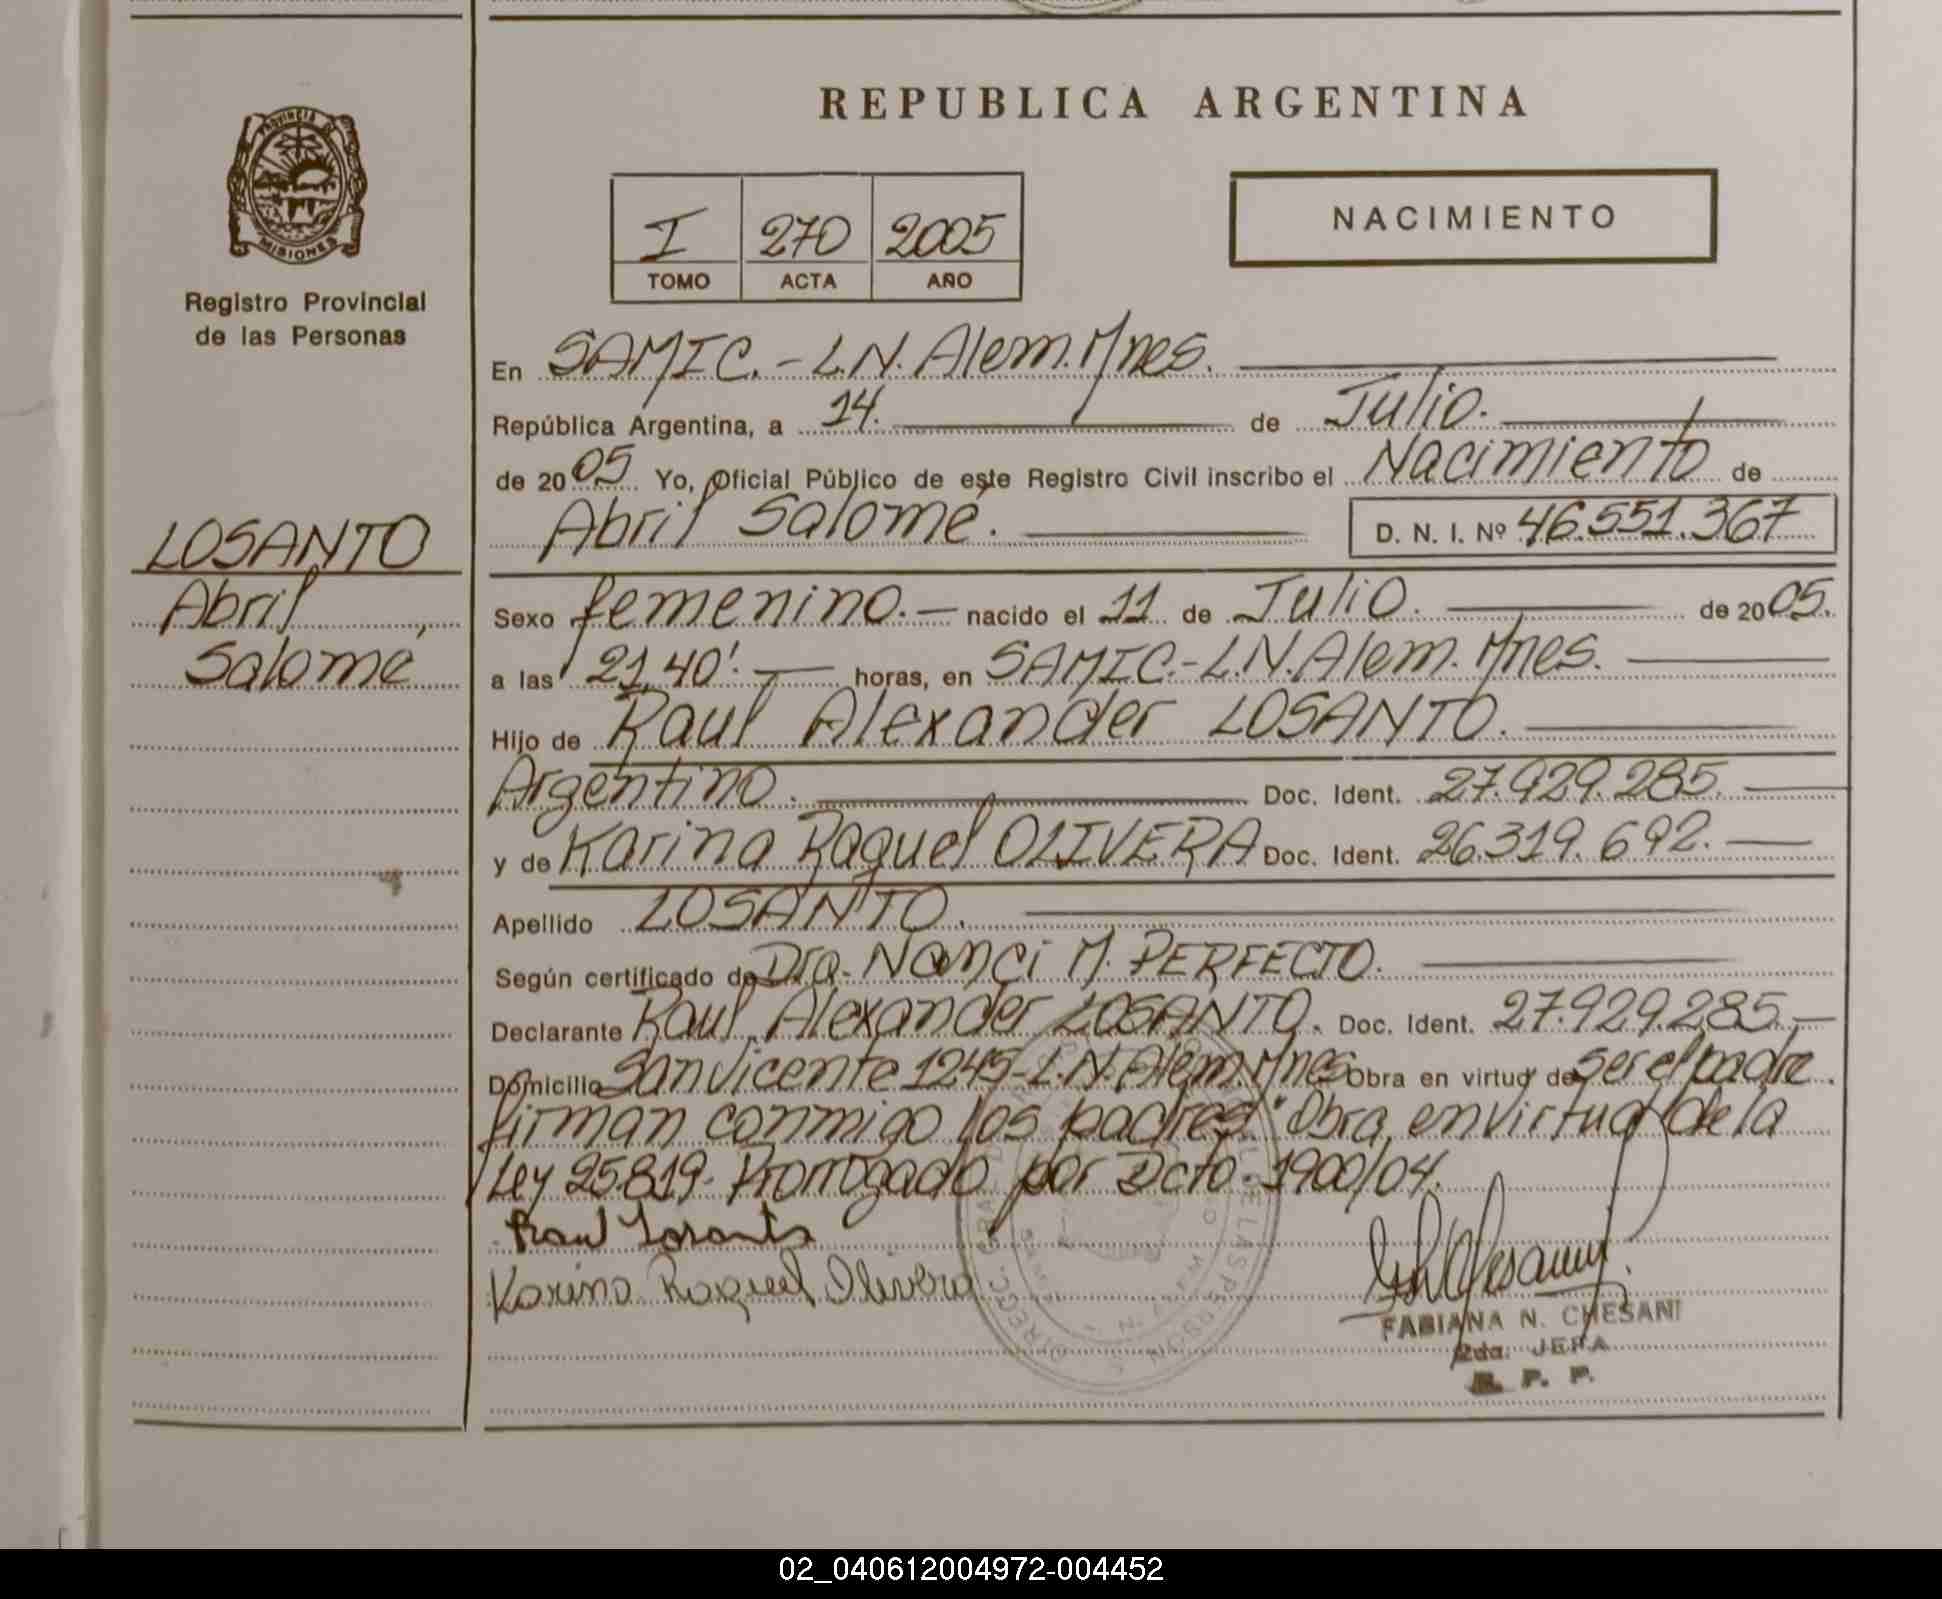 REPUBLICA ARGENTINA
PROVINCIA DE
MISIONES
Registro Provincial
de las Personas
I 270 2005
TOMO ACTA AÑO
NACIMIENTO
En SAMIC.-L.N. Alem. Mnes.
República Argentina, a 14. de Julio.
de 2005 Yo, Oficial Público de este Registro Civil inscribo el Nacimiento de
Abril Salomé. D. N. I. Nº 46.551.367
LOSANTO
Abril
Salomé
Sexo femenino.- nacido el 11 de Julio. de 2005.
a las 21,40'. horas, en SAMIC.-L.N. Alem. Mnes.
Hijo de Raul Alexander LOSANTO.
Argentino. Doc. Ident. 27.929.285.
y de Karina Raquel OLIVERA Doc. Ident. 26.319.692.
Apellido LOSANTO.
Según certificado de Dra. Nanci M. PERFECTO.
Declarante Raul Alexander LOSANTO. Doc. Ident. 27.929.285.-
Domicilio San Vicente 1245-L.N. Alem. Mnes Obra en virtud de ser el padre.
firman conmigo los padres." Obra en virtud de la
Ley 25.819. Prorrogado por Dcto. 1900/04.
Raul Losanto
Karina Raquel Olivera
FABIANA N. CHESANI
2da. JEFA
R. P. P.
02_040612004972-004452